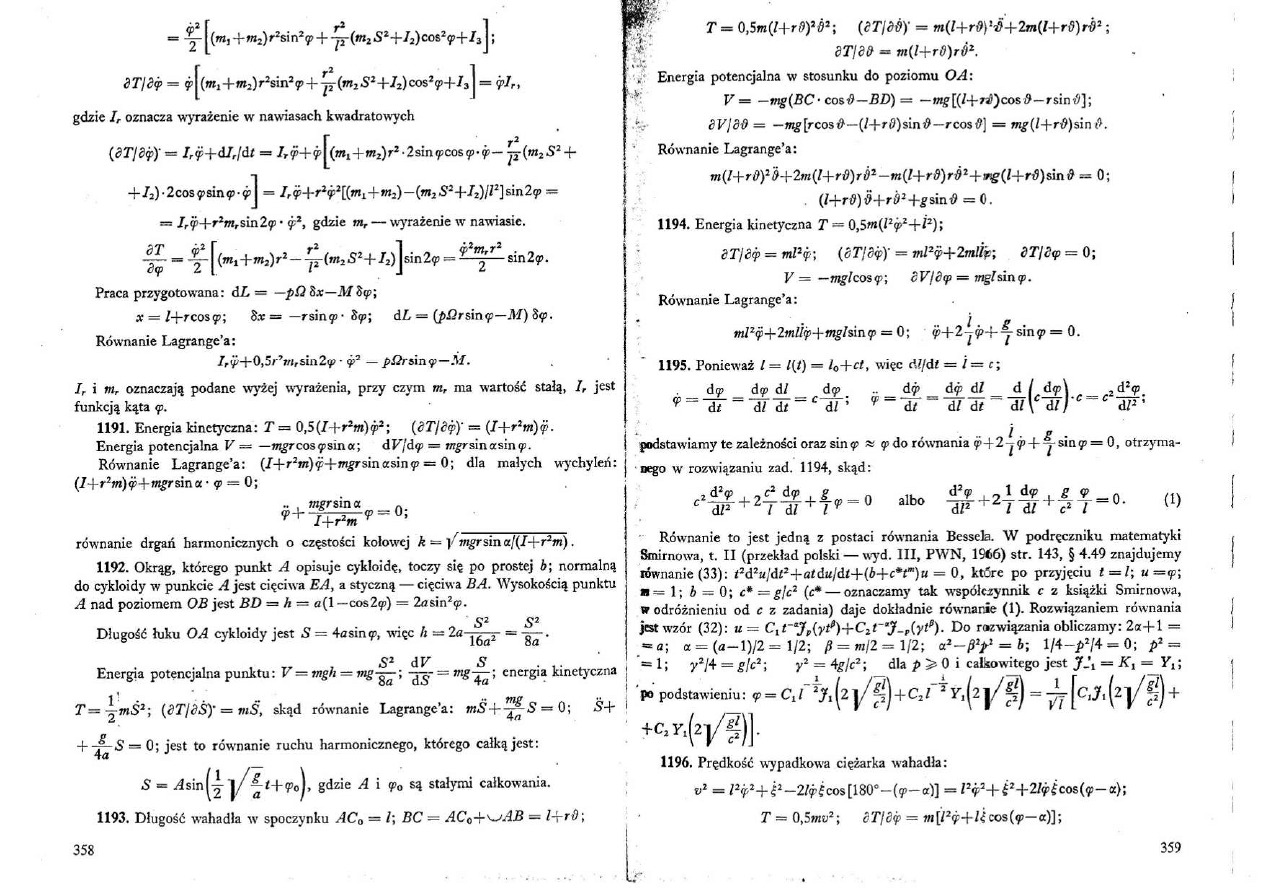 = φ̇²/2 [(m₁+m₂)r²sin²φ + r²/l² (m₂S²+I₂)cos²φ+I₃];
∂T/∂φ̇ = φ̇[(m₁+m₂)r²sin²φ + r²/l² (m₂S²+I₂)cos²φ+I₃] = φ̇I_r,
gdzie I_r oznacza wyrażenie w nawiasach kwadratowych
(∂T/∂φ̇)˙ = I_rφ̈+dI_r/dt = I_rφ̈+φ̇[(m₁+m₂)r²·2sinφcosφ·φ̇ − r²/l² (m₂S² +
+I₂)·2cosφsinφ·φ̇] = I_rφ̈+r²φ̇²[(m₁+m₂)−(m₂S²+I₂)/l²]sin2φ =
= I_rφ̈+r²m_r sin2φ · φ̇², gdzie m_r — wyrażenie w nawiasie.
∂T/∂φ = φ̇²/2 [(m₁+m₂)r² − r²/l² (m₂S²+I₂)]sin2φ = φ̇²m_r r²/2 · sin2φ.
Praca przygotowana: dL = −pΩ δx−M δφ;
x = l+rcosφ; δx = −rsinφ · δφ; dL = (pΩrsinφ−M) δφ.
Równanie Lagrange'a:
I_rφ̈+0,5r²m_r sin2φ · φ̇² = pΩrsinφ−M.
I_r i m_r oznaczają podane wyżej wyrażenia, przy czym m_r ma wartość stałą, I_r jest
funkcją kąta φ.
1191. Energia kinetyczna: T = 0,5(I+r²m)φ̇²; (∂T/∂φ̇)˙ = (I+r²m)φ̈.
Energia potencjalna V = −mgrcosφsinα; dV/dφ = mgrsinαsinφ.
Równanie Lagrange'a: (I+r²m)φ̈+mgrsinαsinφ = 0; dla małych wychyleń:
(I+r²m)φ̈+mgrsinα · φ = 0;
φ̈ + mgrsinα/(I+r²m) φ = 0;
równanie drgań harmonicznych o częstości kołowej k = √(mgrsinα/(I+r²m)).
1192. Okrąg, którego punkt A opisuje cykloidę, toczy się po prostej b; normalną
do cykloidy w punkcie A jest cięciwa EA, a styczną — cięciwa BA. Wysokością punktu
A nad poziomem OB jest BD = h = a(1−cos2φ) = 2asin²φ.
Długość łuku OA cykloidy jest S = 4asinφ, więc h = 2a S²/16a² = S²/8a.
Energia potencjalna punktu: V = mgh = mg S²/8a; dV/dS = mg S/4a; energia kinetyczna
T = 1/2 mṠ²; (∂T/∂Ṡ)˙ = mS̈, skąd równanie Lagrange'a: mS̈ + mg/4a S = 0; S̈+
+ g/4a S = 0; jest to równanie ruchu harmonicznego, którego całką jest:
S = Asin(1/2 √(g/a) t+φ₀), gdzie A i φ₀ są stałymi całkowania.
1193. Długość wahadła w spoczynku AC₀ = l; BC = AC₀+◡AB = l+rϑ;
358
T = 0,5m(l+rϑ)²ϑ̇²; (∂T/∂ϑ̇)˙ = m(l+rϑ)²ϑ̈+2m(l+rϑ)rϑ̇²;
∂T/∂ϑ = m(l+rϑ)rϑ̇².
Energia potencjalna w stosunku do poziomu OA:
V = −mg(BC · cosϑ−BD) = −mg[(l+rϑ)cosϑ−rsinϑ];
∂V/∂ϑ = −mg[rcosϑ−(l+rϑ)sinϑ−rcosϑ] = mg(l+rϑ)sinϑ.
Równanie Lagrange'a:
m(l+rϑ)²ϑ̈+2m(l+rϑ)rϑ̇²−m(l+rϑ)rϑ̇²+mg(l+rϑ)sinϑ = 0;
(l+rϑ)ϑ̈+rϑ̇²+gsinϑ = 0.
1194. Energia kinetyczna T = 0,5m(l²φ̇²+l̇²);
∂T/∂φ̇ = ml²φ̇; (∂T/∂φ̇)˙ = ml²φ̈+2mll̇φ̇; ∂T/∂φ = 0;
V = −mglcosφ; ∂V/∂φ = mglsinφ.
Równanie Lagrange'a:
ml²φ̈+2mll̇φ̇+mglsinφ = 0; φ̈+2 l̇/l φ̇+ g/l sinφ = 0.
1195. Ponieważ l = l(t) = l₀+ct, więc dl/dt = l̇ = c;
φ̇ = dφ/dt = dφ/dl dl/dt = c dφ/dl; φ̈ = dφ̇/dt = dφ̇/dl dl/dt = d/dl (c dφ/dl)·c = c² d²φ/dl²;
podstawiamy te zależności oraz sinφ ≈ φ do równania φ̈+2 l̇/l φ̇ + g/l sinφ = 0, otrzyma-
nego w rozwiązaniu zad. 1194, skąd:
c² d²φ/dl² + 2 c²/l dφ/dl + g/l φ = 0 albo d²φ/dl² + 2 1/l dφ/dl + g/c² φ/l = 0. (1)
Równanie to jest jedną z postaci równania Bessela. W podręczniku matematyki
Smirnowa, t. II (przekład polski — wyd. III, PWN, 1966) str. 143, § 4.49 znajdujemy
równanie (33): t²d²u/dt²+atdu/dt+(b+c*tᵐ)u = 0, które po przyjęciu t = l; u = φ;
m = 1; b = 0; c* = g/c² (c* — oznaczamy tak współczynnik c z książki Smirnowa,
w odróżnieniu od c z zadania) daje dokładnie równanie (1). Rozwiązaniem równania
jest wzór (32): u = C₁t⁻ᵅJ_p(γtᵝ)+C₂t⁻ᵅJ₋p(γtᵝ). Do rozwiązania obliczamy: 2α+1 =
= a; α = (a−1)/2 = 1/2; β = m/2 = 1/2; α²−β²p² = b; 1/4−p²/4 = 0; p² =
= 1; γ²/4 = g/c²; γ² = 4g/c²; dla p ⩾ 0 i całkowitego jest J₋₁ = K₁ = Y₁;
po podstawieniu: φ = C₁l^(−1/2)J₁(2√(gl/c²))+C₂l^(−1/2)Y₁(2√(gl/c²)) = 1/√l [C₁J₁(2√(gl/c²)) +
+C₂Y₁(2√(gl/c²))].
1196. Prędkość wypadkowa ciężarka wahadła:
v² = l²φ̇²+ξ̇²−2lφ̇ξ̇cos[180°−(φ−α)] = l²φ̇²+ξ̇²+2lφ̇ξ̇cos(φ−α);
T = 0,5mv²; ∂T/∂φ̇ = m[l²φ̇+lξ̇cos(φ−α)];
359